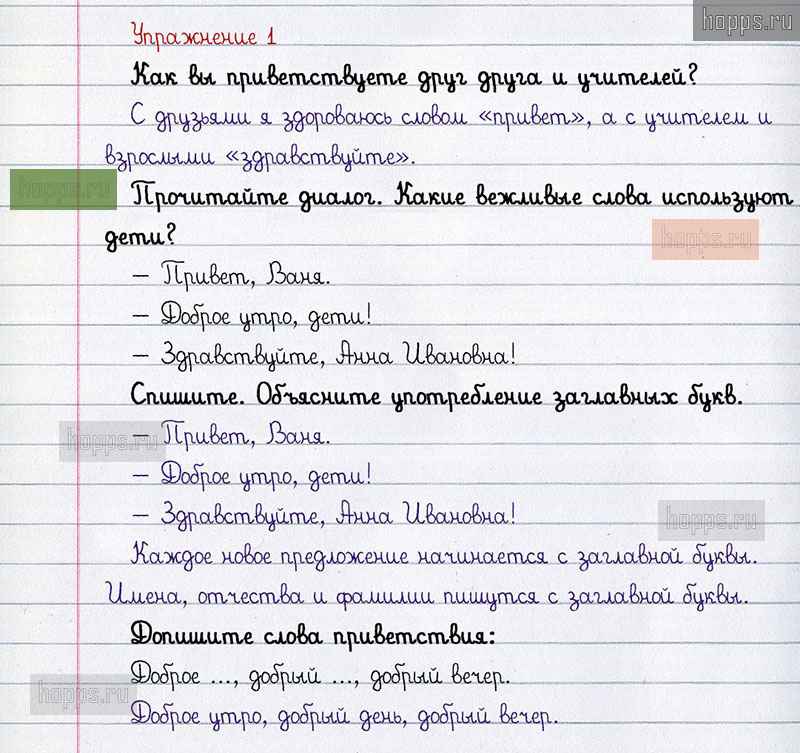 hopps.ru
Упражнение 1
Как вы приветствуете друг друга и учителей?
С друзьями я здороваюсь словом «привет», а с учителем и
взрослыми «здравствуйте».
hopps.ru
Прочитайте диалог. Какие вежливые слова используют
дети?
hopps.ru
– Привет, Ваня.
– Доброе утро, дети!
– Здравствуйте, Анна Ивановна!
Спишите. Объясните употребление заглавных букв.
hopps.ru
– Привет, Ваня.
– Доброе утро, дети!
– Здравствуйте, Анна Ивановна!
hopps.ru
Каждое новое предложение начинается с заглавной буквы.
Имена, отчества и фамилии пишутся с заглавной буквы.
Допишите слова приветствия:
Доброе ..., добрый ..., добрый вечер.
hopps.ru
Доброе утро, добрый день, добрый вечер.